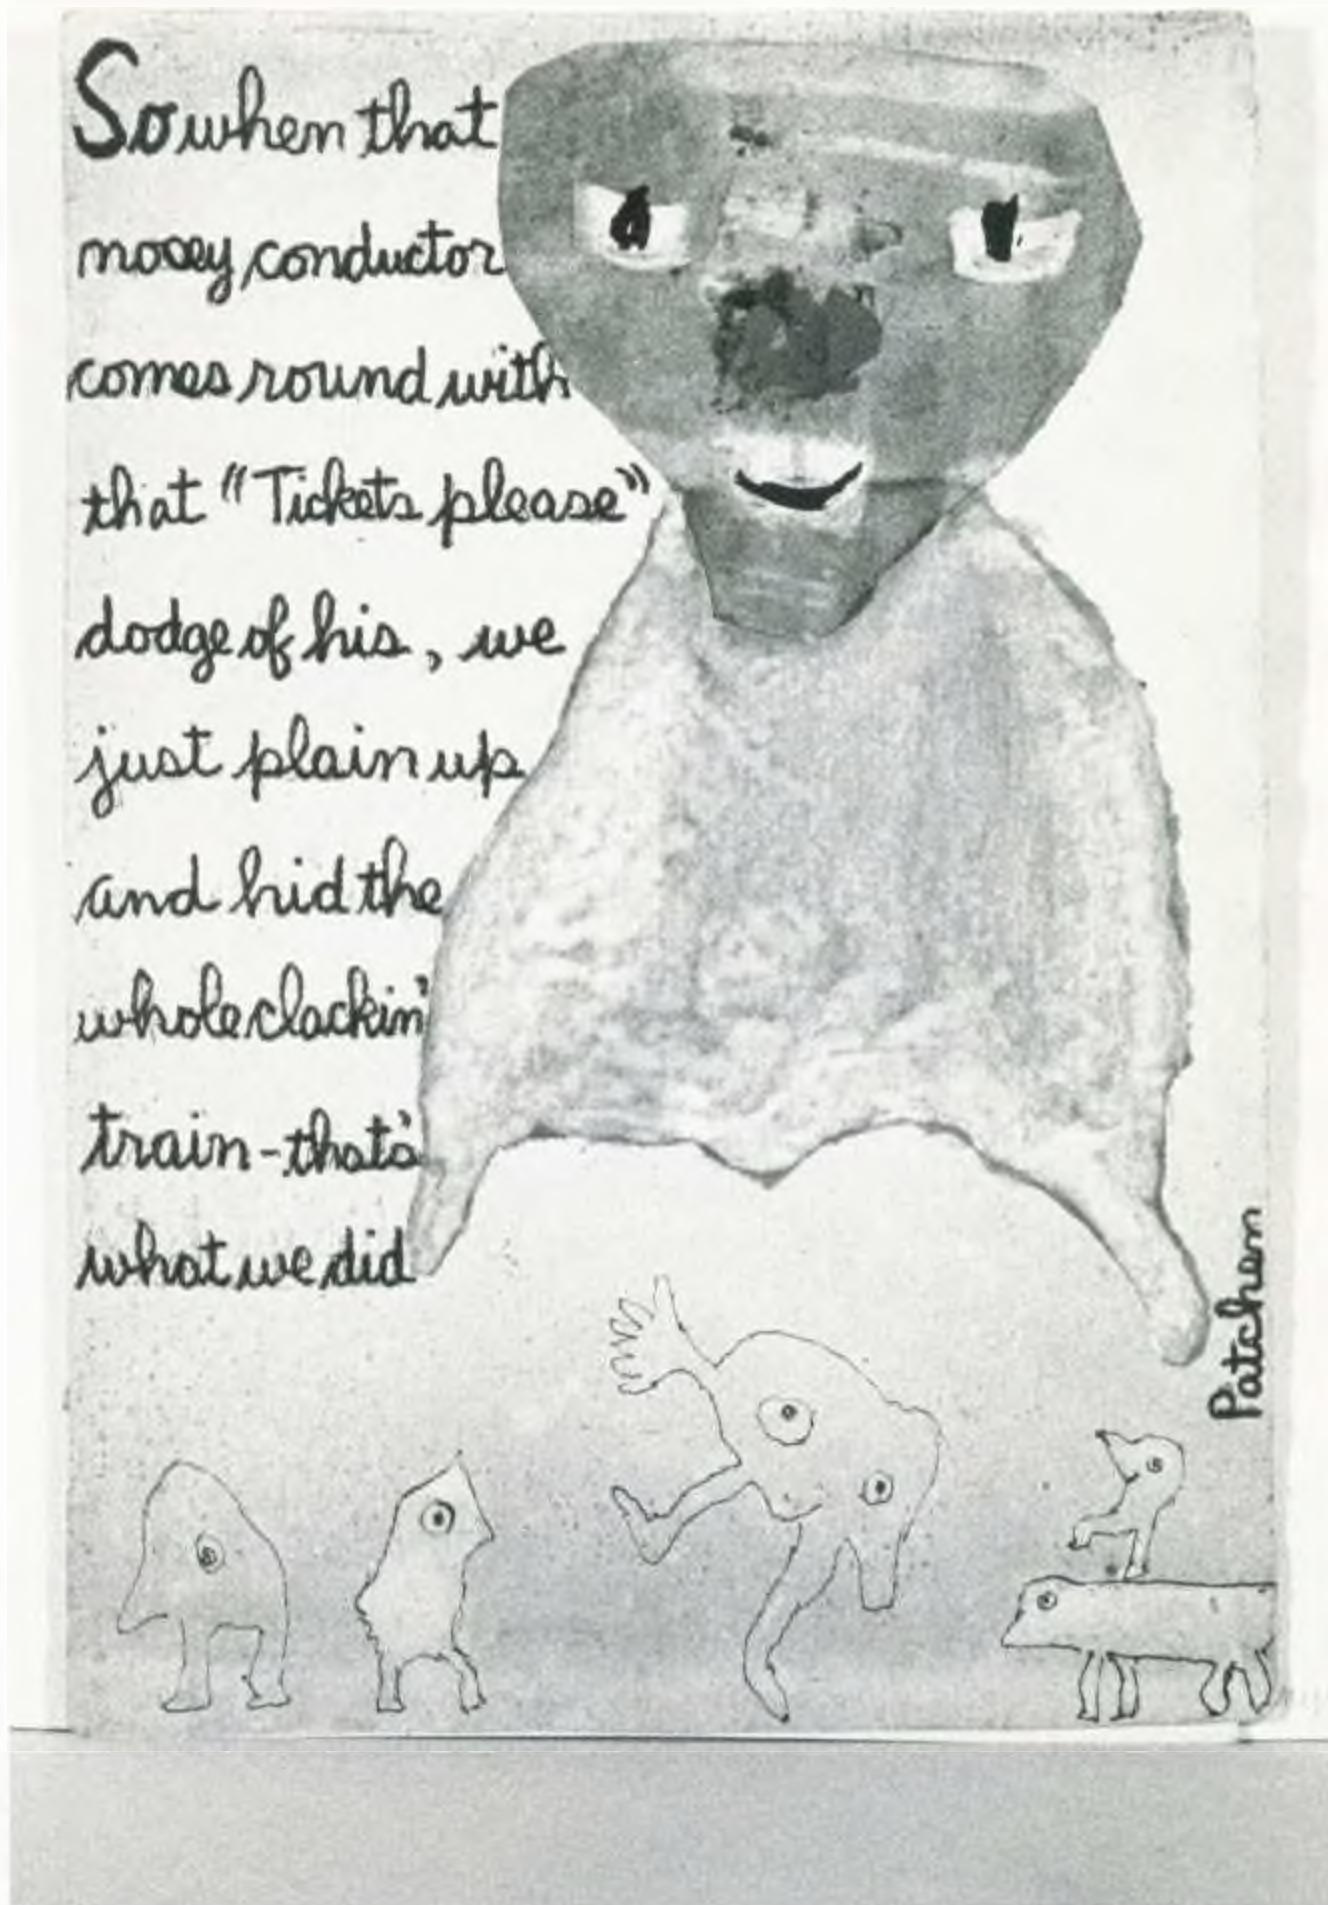 So when that
nosey conductor
comes round with
that "Tickets please"
dodge of his, we
just plain up
and hid the
whole clackin'
train - that's
what we did
Patchen